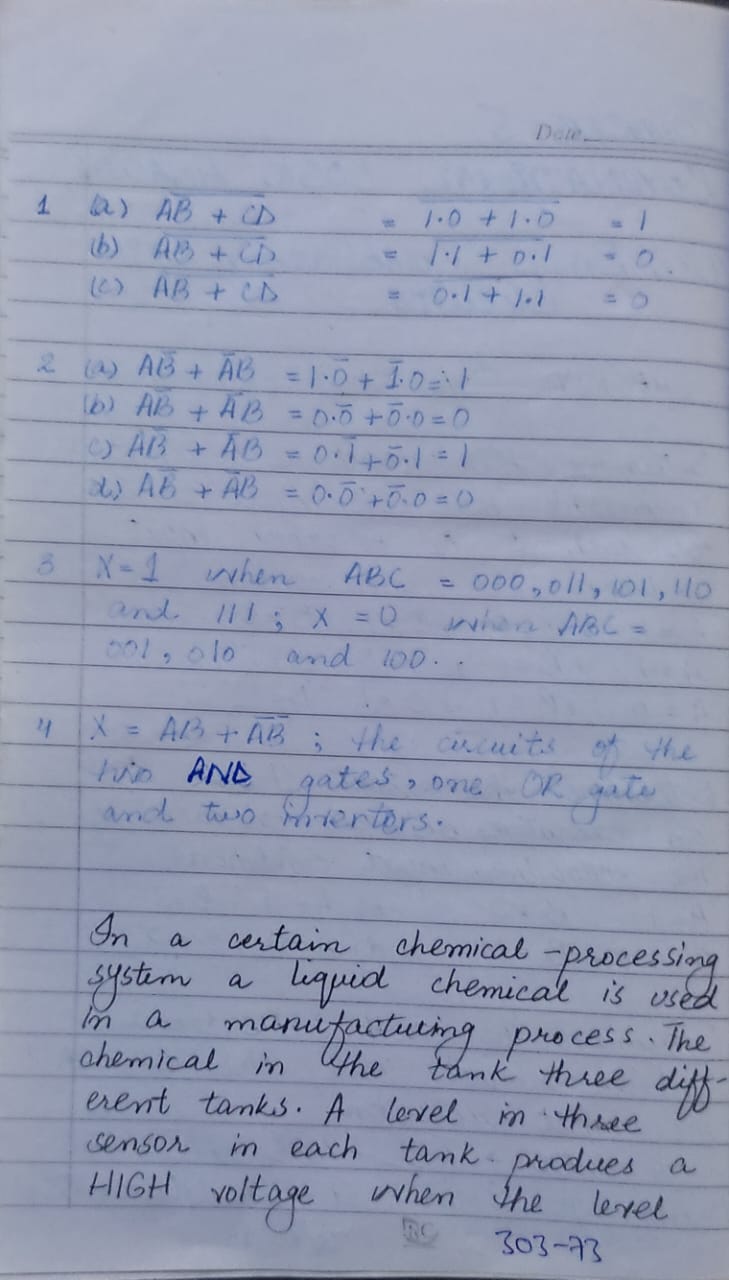 Date
1 (a) \overline{AB + CD} = \overline{1.0 + 1.0} = 1
(b) \overline{AB + CD} = \overline{1.1 + 0.1} = 0
(c) \overline{AB + CD} = \overline{0.1 + 1.1} = 0
2 (a) AB̅ + A̅B = 1.0̅ + 1̅.0 = 1
(b) AB̅ + A̅B = 0.0̅ + 0̅.0 = 0
c) AB̅ + A̅B = 0.1̅ + 0̅.1 = 1
d) AB̅ + A̅B = 0.0̅ + 0̅.0 = 0
3 X=1 when ABC = 000, 011, 101, 110
and 111; X = 0 when ABC =
001, 010 and 100.
4 X = AB + A̅B̅ ; the circuits of the
two AND gates, one OR gate
and two inverters.
In a certain chemical-processing
system a liquid chemical is used
in a manufacturing process. The
chemical in the tank three diff-
erent tanks. A level in three
sensor in each tank produes a
HIGH voltage when the level
303-73